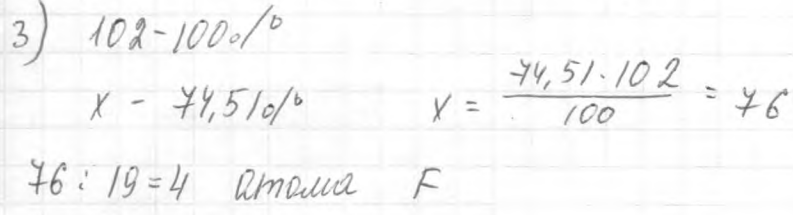 3) 102 - 100%
x - 74,51% x = 74,51 · 102 / 100 = 76
76 : 19 = 4 атома F